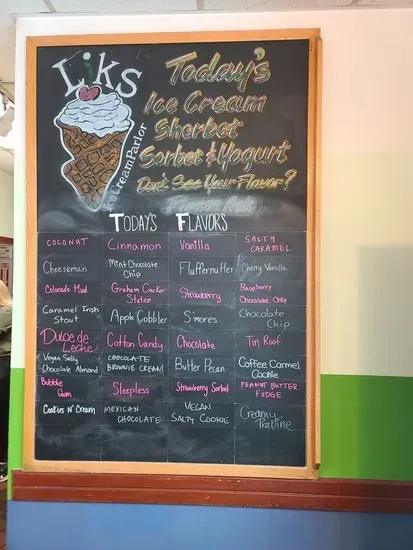 Liks
Ice Cream Parlor
Today's
Ice Cream
Sherbet
Sorbet & Yogurt
Don't See Your Flavor?
Please Ask
Today's Flavors
Coconut
Cinnamon
Vanilla
Salty Caramel
Cheeseman
Mint Chocolate Chip
Fluffernutter
Cherry Vanilla
Colorado Mud
Graham Cracker
Strawberry
Raspberry Chocolate Chip
Caramel Irish Stout
Apple Cobbler
S'mores
Chocolate Chip
Dulce de Leche
Cotton Candy
Chocolate
Tin Roof
Vegan Salty Chocolate Almond
Chocolate Brownie Cream
Butter Pecan
Coffee Carmel Cookie
Bubble Gum
Sleepless
Strawberry Sorbet
Peanut Butter Fudge
Cookies N' Cream
Mexican Chocolate
Vegan Salty Cookie
Creamy Praline